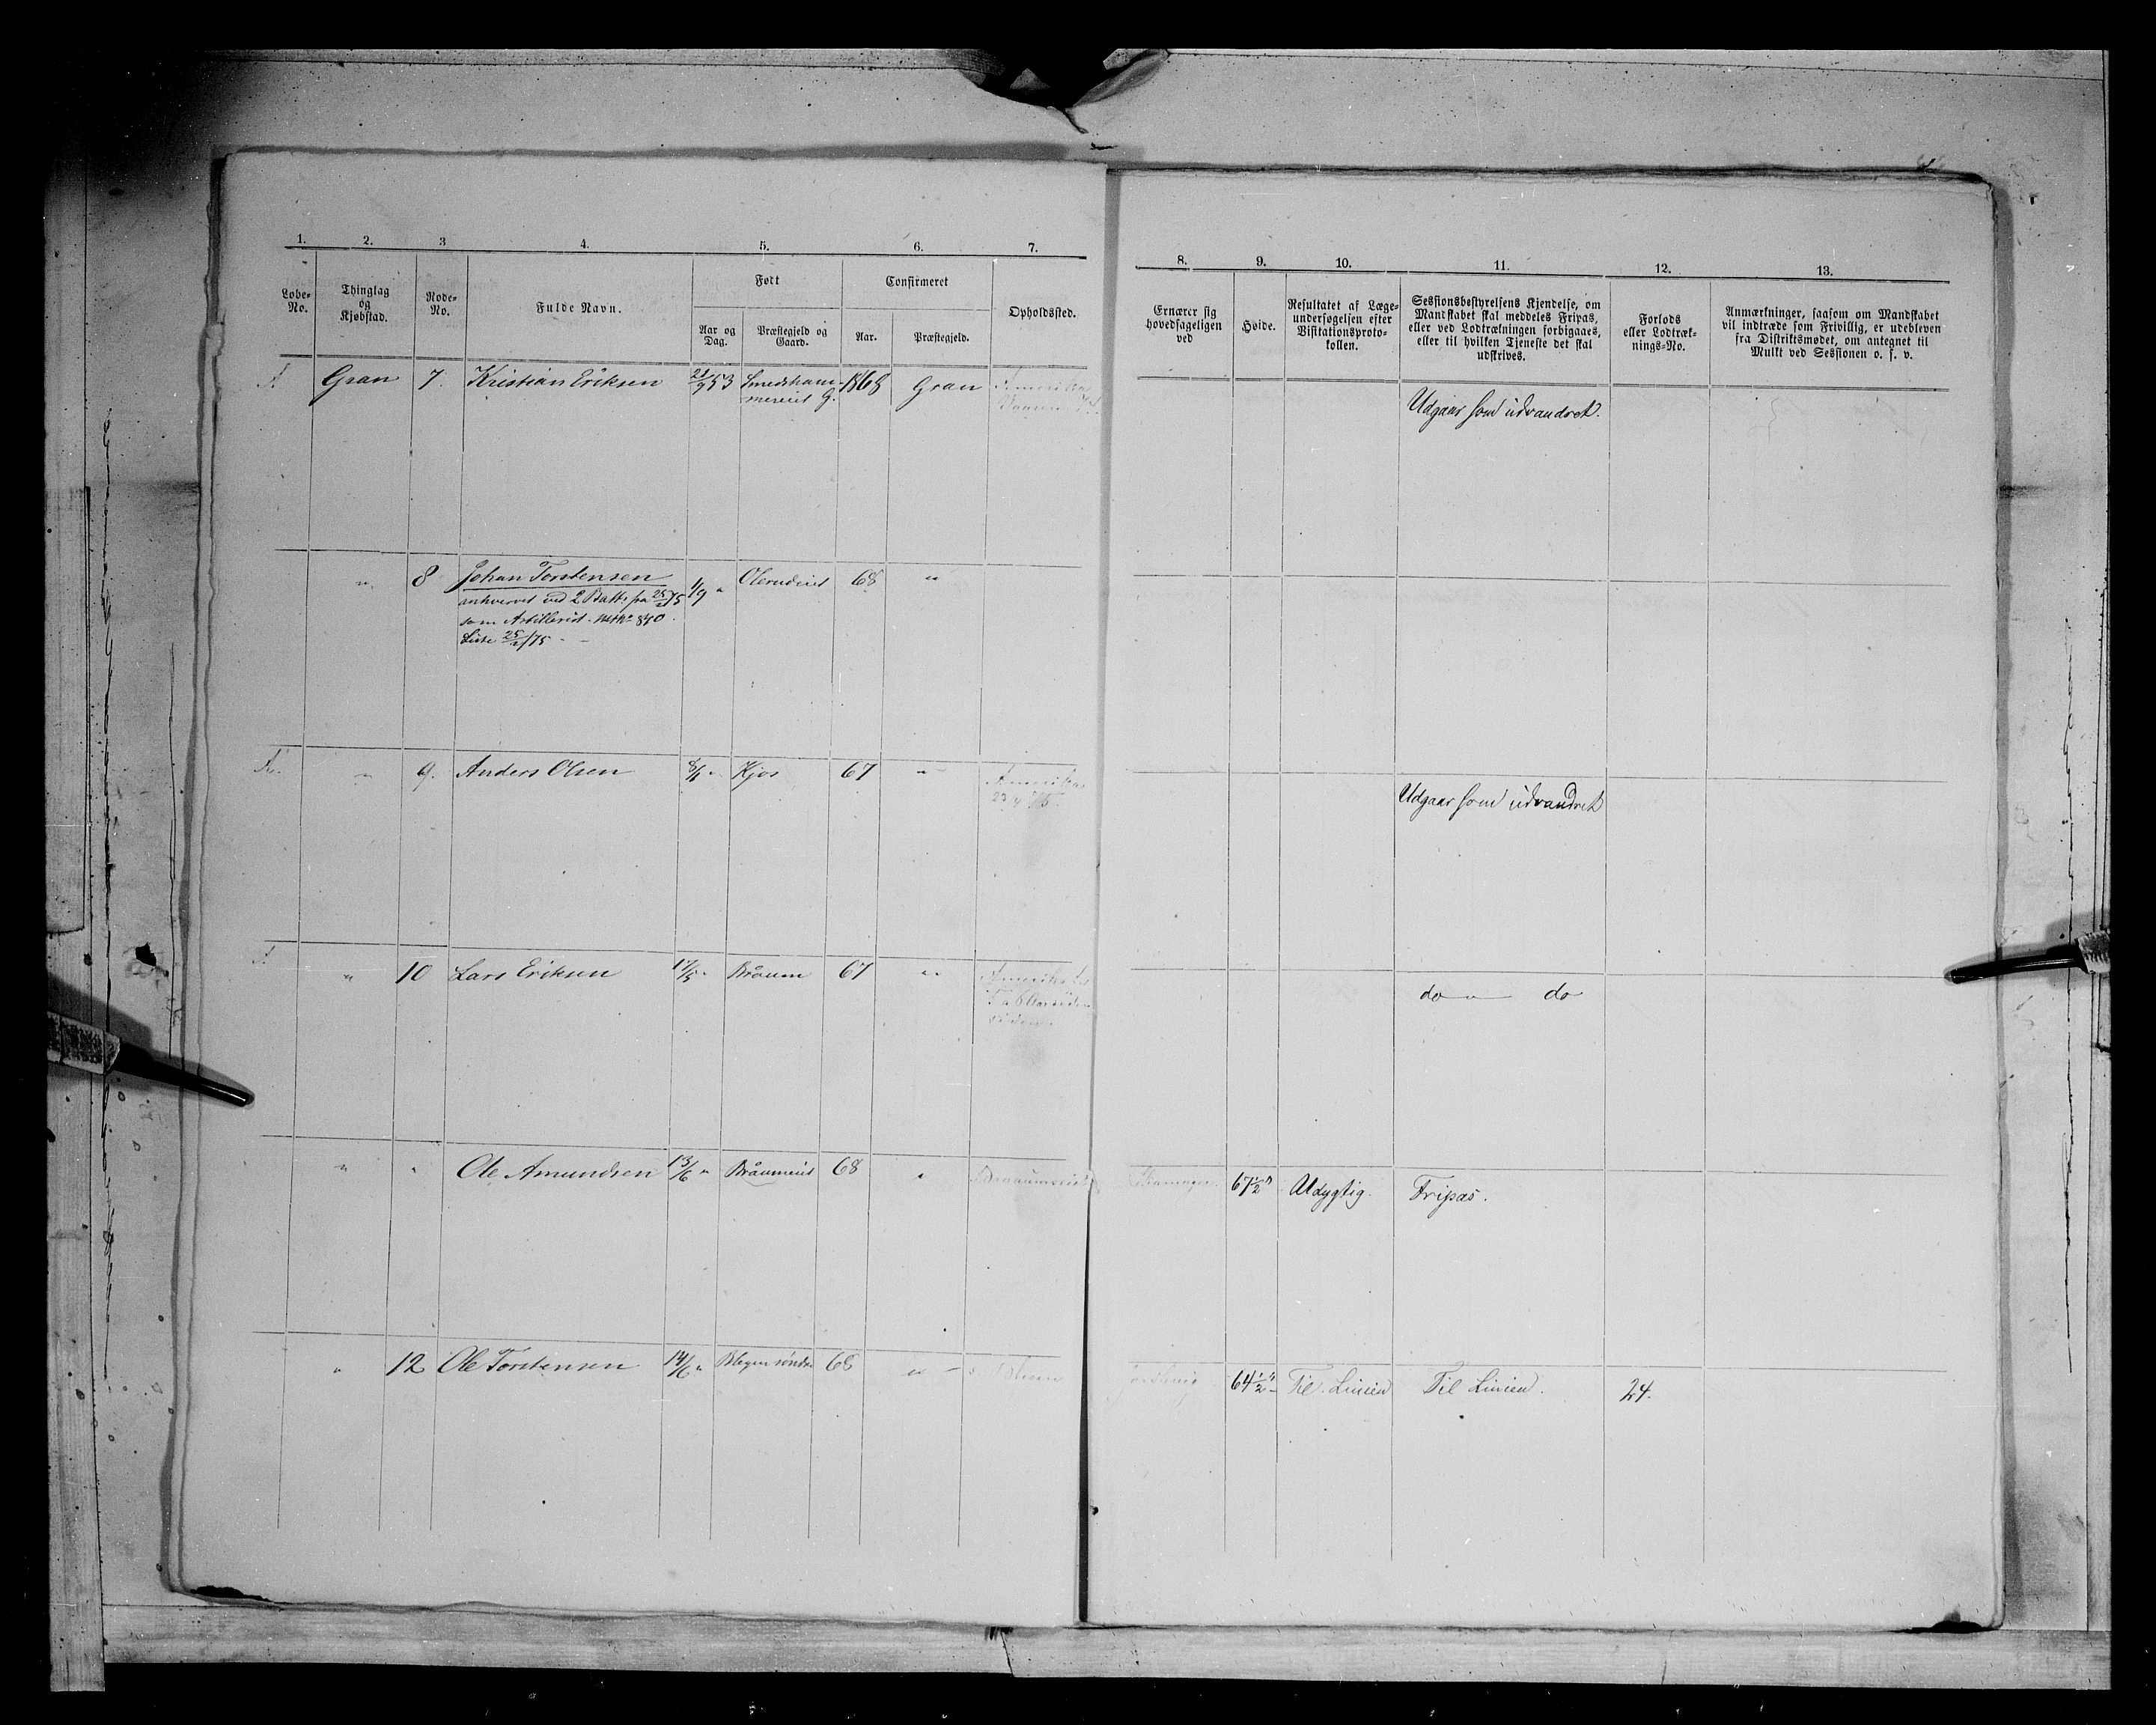 1. 2. 3 4. 5. 6. 7.
Løbe-No. Thinglag og Kjøbstad. Rode-No. Fulde Navn. Født Confirmeret Opholdssted.
Aar og Dag. Præstegjeld og Gaard. Aar. Præstegjeld.
Gran 7. Kristian Eriksen 21/9 53 Smedsham- 1868 Gran Amerika
mereiet G.
" 8 Johan Torstensen 1/9 " Olerudeiet 68 "
anhvervet ved 2 Batt. fra 25/2 75
som Artillerist. No 840.
Liste 25/2 75 -
" 9. Anders Olsen 8/1 " Kjos 67 " Amerika
23/4 75.
" 10 Lars Eriksen 17/5 " Bråum 67 " Amerika
" " Ole Amundsen 13/6 " Bråumeiet 68 " Braaumseiet
" 12 Ole Torstensen 14/6 " Blegen søndre 68 "
8. 9. 10. 11. 12. 13.
Ernærer sig
hovedsageligen
ved
Høide.
Resultatet af Læge-
undersøgelsen efter
Visitationsproto-
kollen.
Sessionsbestyrelsens Kjendelse, om
Mandskabet skal meddeles Fripas,
eller ved Lodtrækningen forbigaaes,
eller til hvilken Tjeneste det skal
udskrives.
Forlods
eller Lodtræk-
nings-No.
Anmærkninger, saasom om Mandskabet
vil indtræde som Frivillig, er udebleven
fra Distriktsmødet, om antegnet til
Mulkt ved Sessionen o. s. v.
Udgaar som udvandret.
Udgaar som udvandret
do " do
67 1/2" Udygtig. Fripas.
64 1/2" Til Linien Til Linien. 24.